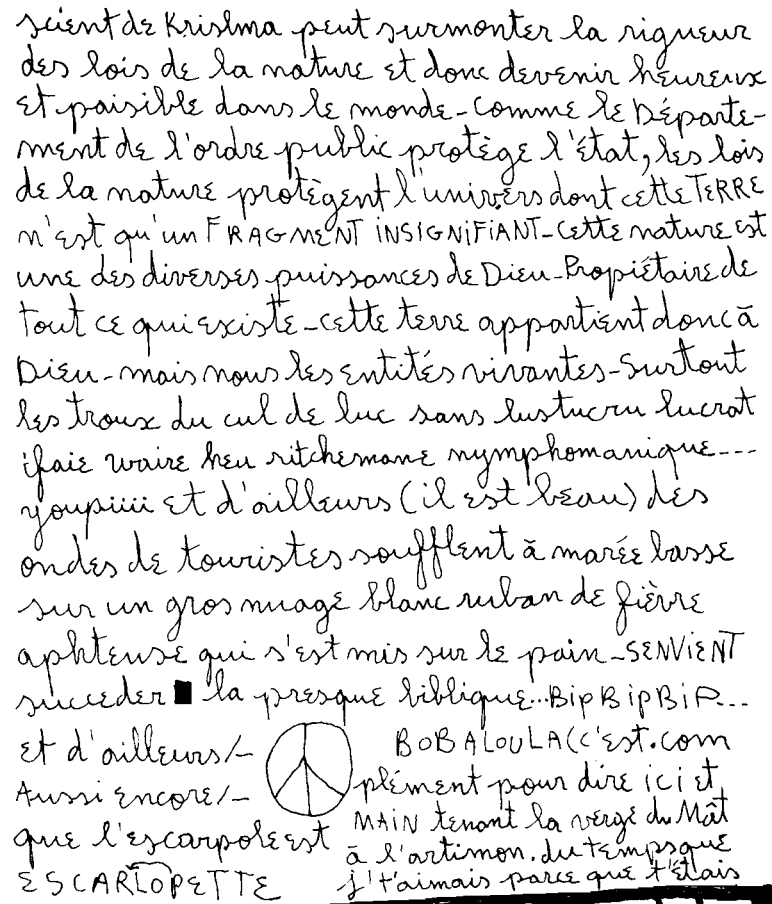 scient de Krishma peut surmonter la rigueur
des lois de la nature et donc devenir heureux
et paisible dans le monde - comme le Départe-
ment de l'ordre public protège l'état, les lois
de la nature protègent l'univers dont cette TERRE
n'est qu'un FRAGMENT INSIGNIFIANT - cette nature est
une des diverses puissances de Dieu - Propiétaire de
tout ce qui existe - cette terre appartient donc à
Dieu - mais nous les entités vivantes - Surtout
les troux du cul de luc sans lustucru lucrat
ifaie waire heu ritchemane nymphomanique---
youpiiii et d'ailleurs (il est beau) des
ondes de touristes soufflent à marée basse
sur un gros nuage blanc ruban de fièvre
aphteuse qui s'est mis sur le pain - SENVIENT
succeder la presque biblique...BipBipBiP...
et d'ailleurs/-
Aussi encore/-
que l'escarpole est
ESCARLOPETTE
BOBALOULA (c'est. com
plément pour dire ici et
MAIN tenant la verge du Mât
à l'artimon. du temps que
j't'aimais parce que t'étais